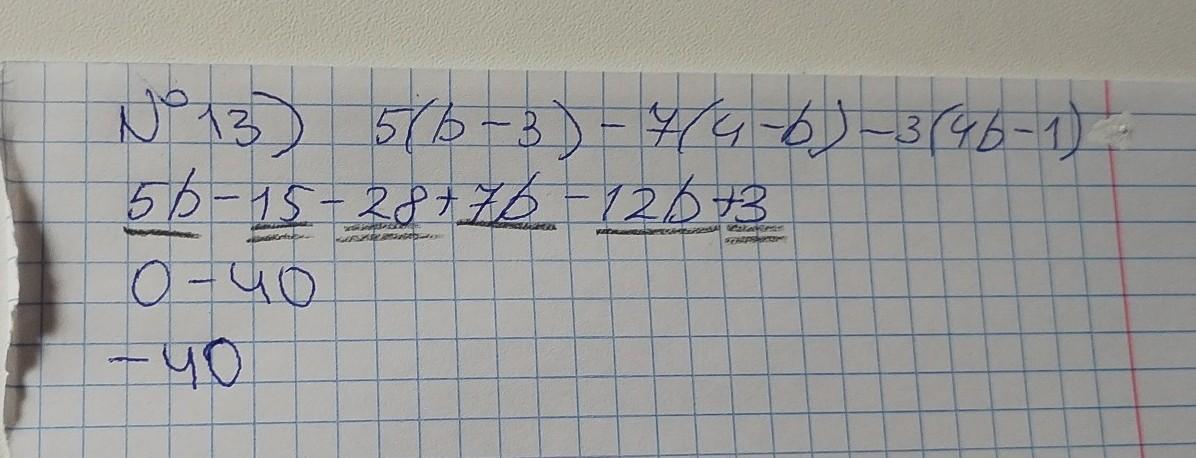 №13) 5(b-3)-7(4-b)-3(4b-1)
5b-15-28+7b-12b+3
0-40
-40